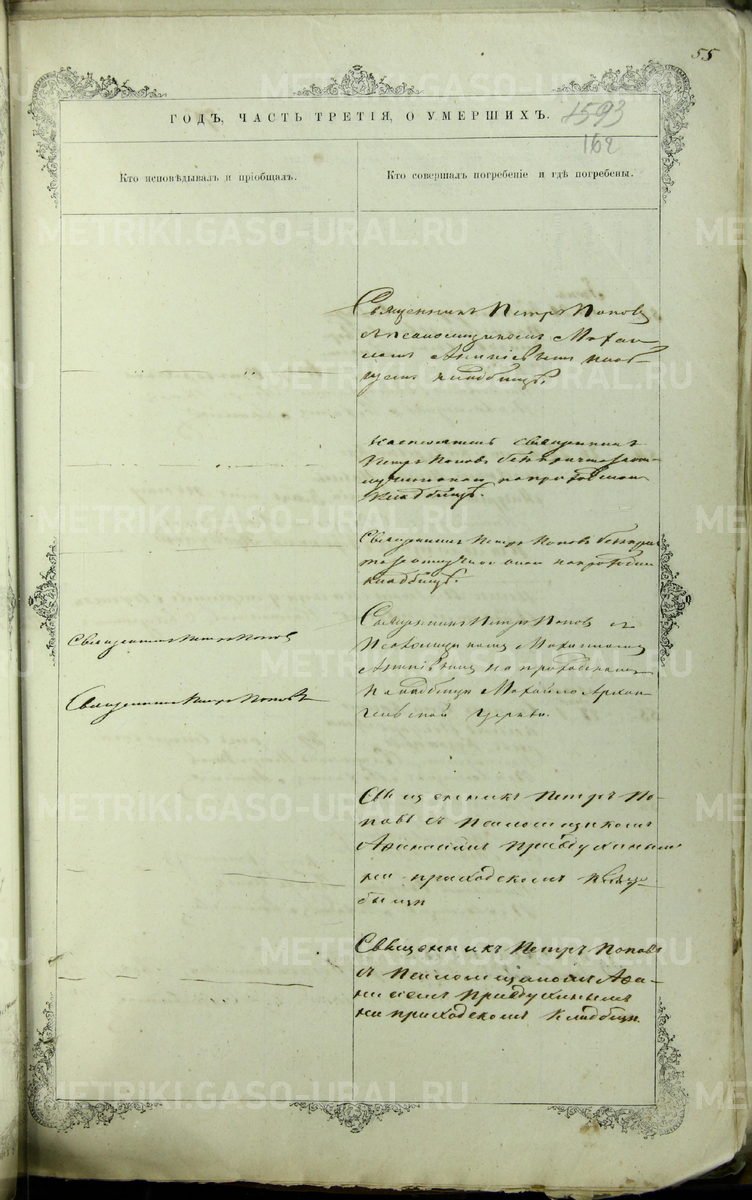 55
ГОДЪ, ЧАСТЬ ТРЕТІЯ, О УМЕРШИХЪ.
1593
162
Кто исповѣдывалъ и пріобщалъ.
Кто совершалъ погребеніе и гдѣ погребены.
Священникъ Петръ Поповъ
съ псаломщикомъ Михаи
ломъ
кладбищѣ.
священникъ
Петръ Поповъ безъ причта
на приходском
кладбищѣ.
Священникъ Петръ Поповъ безъ при
на приходском
кладбищѣ.
Священникъ Петръ Поповъ
Священникъ Петръ Поповъ съ
Псаломщикомъ Михаиломъ
на приходскомъ
Священникъ Петръ Поповъ
кладбищи Михайло Архан
гельской церкви.
Священникъ Петръ По
повъ съ Псаломщикомъ
Афанасіемъ Правдухинымъ
на приходскомъ клад
бищи
Священникъ Петръ Поповъ
съ Псаломщикомъ Афа-
насіемъ Правдухинымъ
на приходскомъ кладбищи.
METRIKI.GASO-URAL.RU